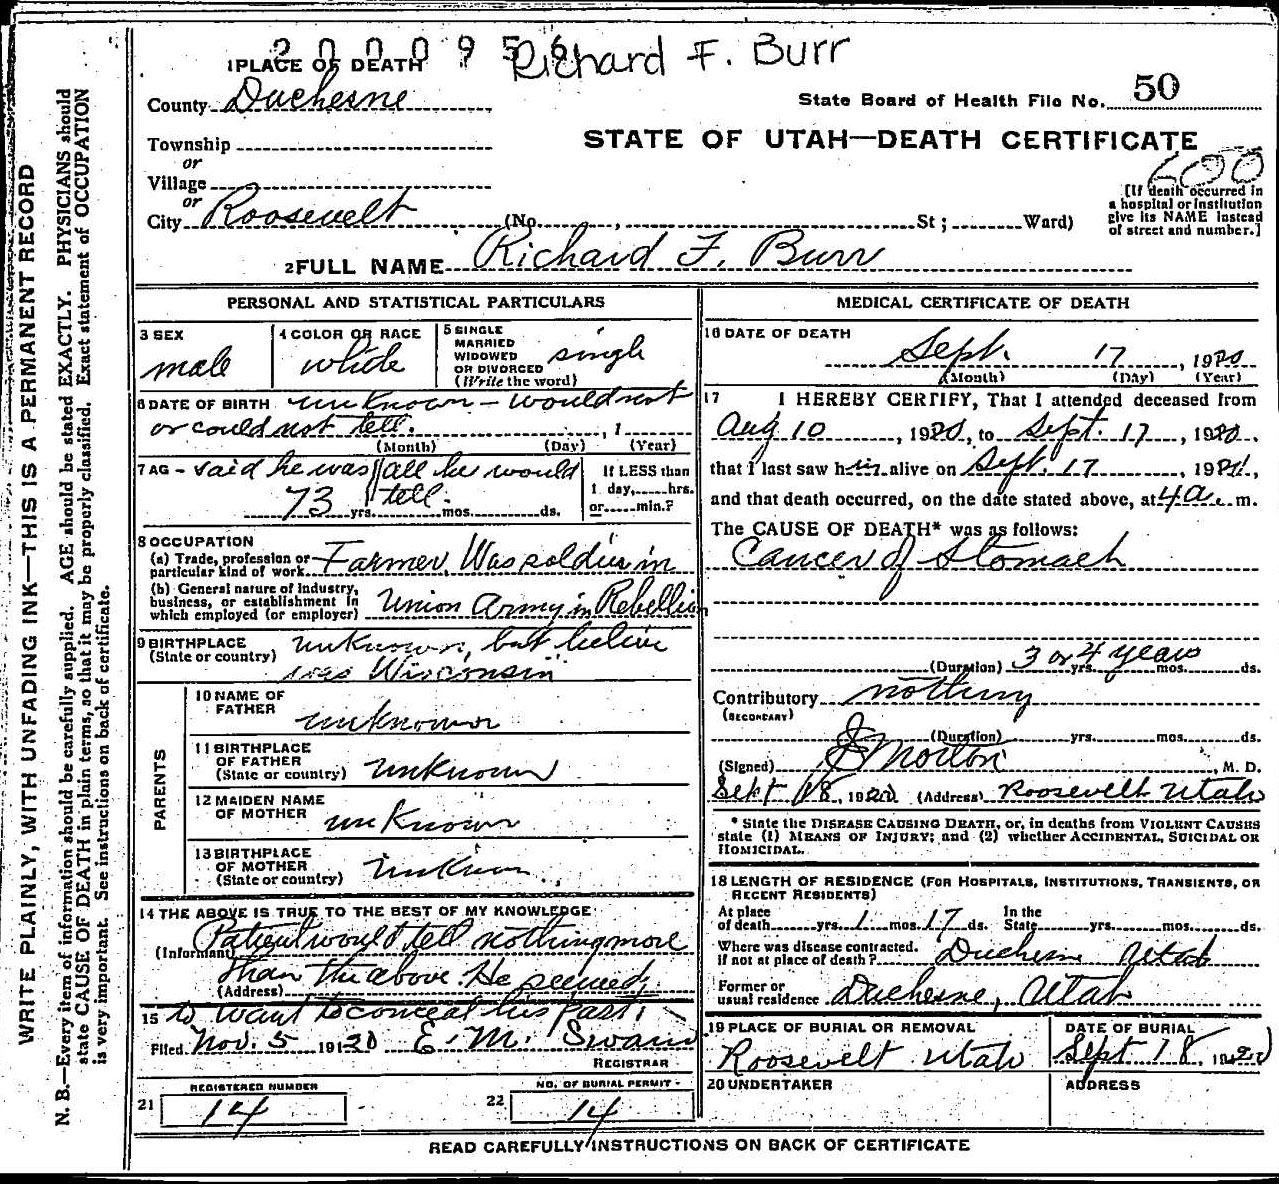 2000956 Richard F. Burr
1 PLACE OF DEATH
County Duchesne
State Board of Health File No. 50
Township
STATE OF UTAH—DEATH CERTIFICATE
or
600
Village
or
City Roosevelt (No. , St ; Ward)
[If death occurred in
a hospital or institution
give its NAME instead
of street and number.]
2 FULL NAME Richard F. Burr
PERSONAL AND STATISTICAL PARTICULARS
3 SEX
male
4 COLOR OR RACE
white
5 SINGLE
MARRIED
WIDOWED
OR DIVORCED
(Write the word)
single
6 DATE OF BIRTH unknown - would not
or could not tell. , 1
(Month) (Day) (Year)
7 AG - said he was all he would
73 yrs. tell. mos. ds.
If LESS than
1 day, hrs.
or min.?
8 OCCUPATION
(a) Trade, profession or
particular kind of work Farmer, Was soldier in
(b) General nature of industry,
business, or establishment in
which employed (or employer) Union Army in Rebellion
9 BIRTHPLACE
(State or country) unknown, but believe
was Wisconsin
PARENTS
10 NAME OF
FATHER
unknown
11 BIRTHPLACE
OF FATHER
(State or country) unknown
12 MAIDEN NAME
OF MOTHER unknown
13 BIRTHPLACE
OF MOTHER
(State or country) unknown
14 THE ABOVE IS TRUE TO THE BEST OF MY KNOWLEDGE
(Informant) Patient would tell nothing more
than the above. He seemed,
(Address)
15 to want to conceal his past.
Filed Nov. 5 1920 E. M. Swain
REGISTRAR
REGISTERED NUMBER
21 14
NO. OF BURIAL PERMIT
22 14
MEDICAL CERTIFICATE OF DEATH
16 DATE OF DEATH
Sept. 17 , 1920
(Month) (Day) (Year)
17 I HEREBY CERTIFY, That I attended deceased from
Aug 10 , 1920, to Sept. 17 , 1920.
that I last saw him alive on Sept. 17 , 1920,
and that death occurred, on the date stated above, at 4 a. m.
The CAUSE OF DEATH* was as follows:
Cancer of Stomach
(Duration) 3 or 4 years yrs. mos. ds.
Contributory nothing
(SECONDARY)
(Duration) yrs. mos. ds.
(Signed) Morton , M. D.
Sept 18, 1920 (Address) Roosevelt Utah
* State the DISEASE CAUSING DEATH, or, in deaths from VIOLENT CAUSES
state (1) MEANS OF INJURY; and (2) whether ACCIDENTAL, SUICIDAL OR
HOMICIDAL.
18 LENGTH OF RESIDENCE (FOR HOSPITALS, INSTITUTIONS, TRANSIENTS, OR
RECENT RESIDENTS)
At place
of death yrs. 1 mos. 17 ds.
In the
State yrs. mos. ds.
Where was disease contracted.
if not at place of death? Duchesne Utah
Former or
usual residence Duchesne, Utah
19 PLACE OF BURIAL OR REMOVAL
Roosevelt Utah
DATE OF BURIAL
Sept 18, 1920
20 UNDERTAKER
ADDRESS
READ CAREFULLY INSTRUCTIONS ON BACK OF CERTIFICATE
WRITE PLAINLY, WITH UNFADING INK—THIS IS A PERMANENT RECORD
N. B.—Every item of information should be carefully supplied. AGE should be stated EXACTLY. PHYSICIANS should
state CAUSE OF DEATH in plain terms, so that it may be properly classified. Exact statement of OCCUPATION
is very important. See instructions on back of certificate.